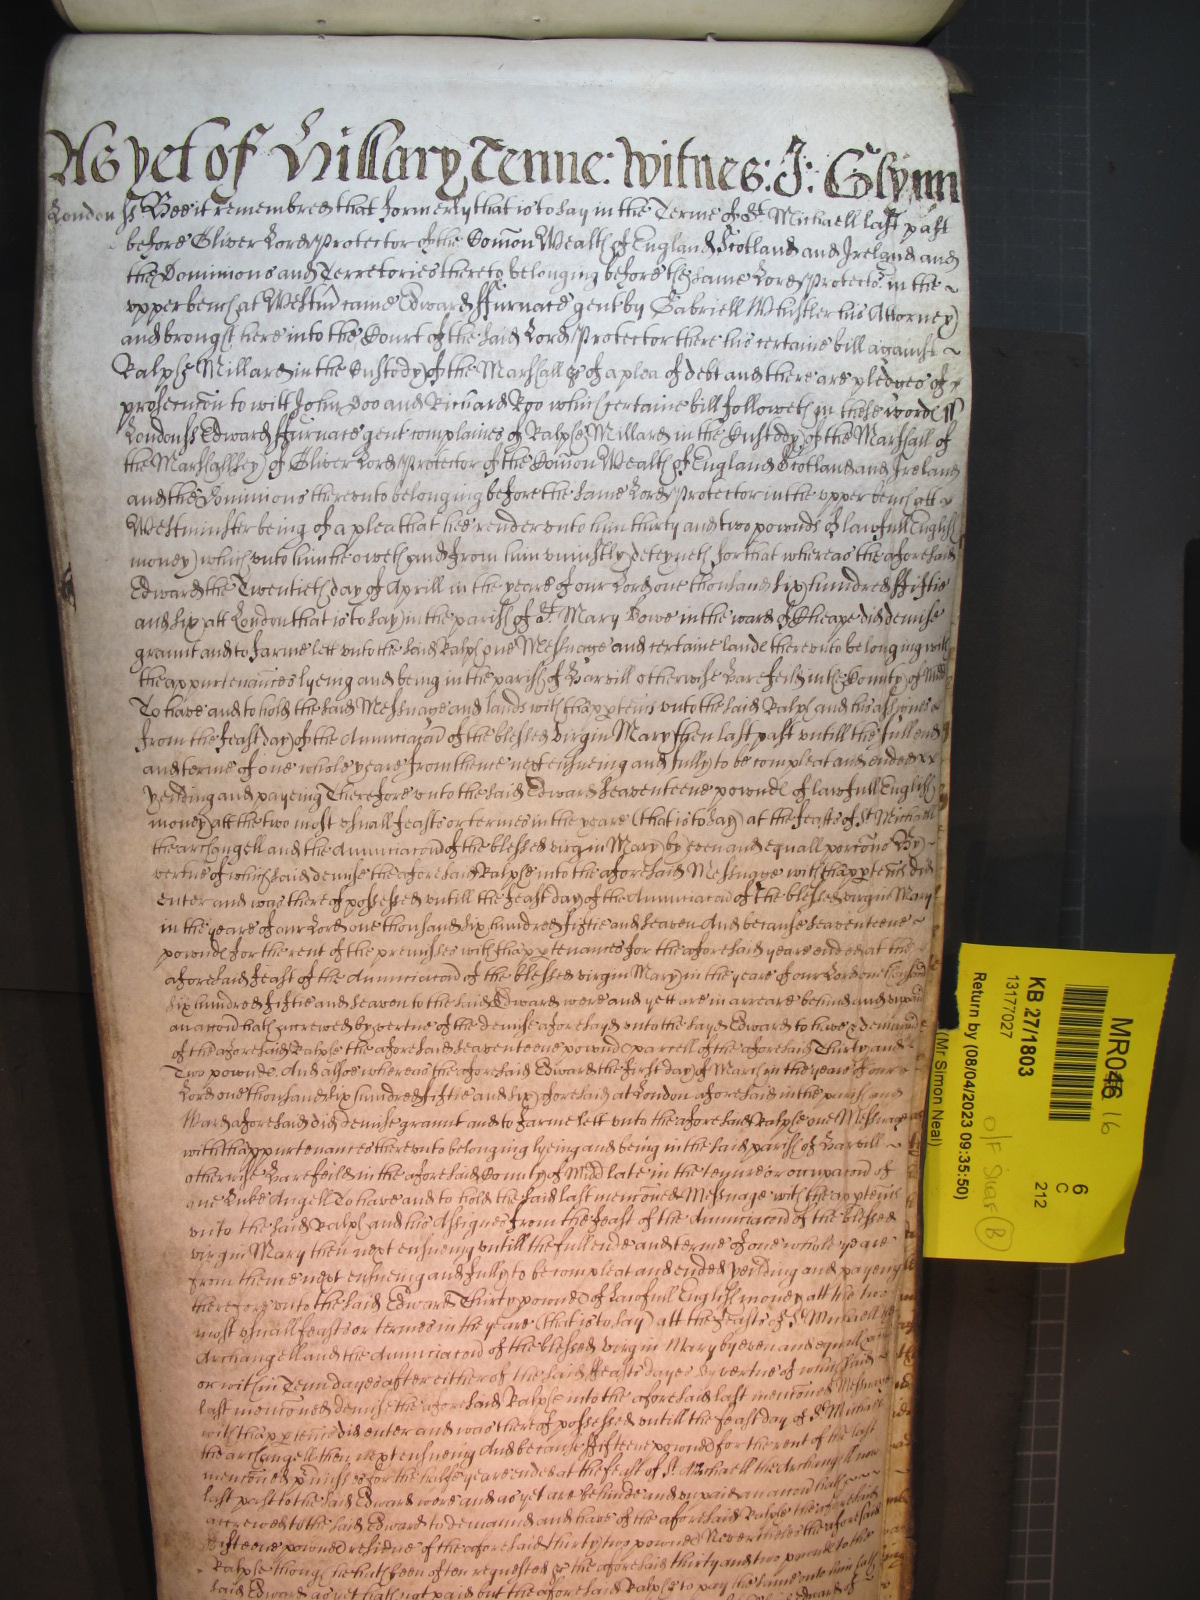 As yet of Hillary Terme: Witnes: J: Glynn
London ss Bee it remembred that formerly that is to say in the Terme of St. Michaell last past
before Oliver Lord Protector of the Comon Wealth of England Scotland and Ireland and
the Dominions and Terretories thereto belonging before the same Lord Protector in the
upper bench at Westm came Edward Furnace gent by Gabriell Whistler his Attorney
and brought here into the Court of the said Lord Protector there his certaine bill against
Ralph Millard in the Custody of the Marshall &c of a plea of debt and there are pledges of
prosecucon to witt John Doo and Richard Roo which certaine bill followeth in these words ss
London ss Edward Furnace gent complaines of Ralph Millard in the Custody of the Marshall of
the Marshallsey of Oliver Lord Protector of the Comon Wealth of England Scotland and Ireland
and the Dominions thereunto belonging before the same Lord Protector in the upper bench att
Westminster being of a plea that hee render unto him thirty and two pownds of lawfull English
money which unto him he oweth and from him uniustly deteyneth for that whereas the aforesaid
Edward the Twentieth day of Aprill in the yeare of our Lord one thousand six hundred fiftie
and six att London that is to say in the parish of St. Mary Bowe in the ward of Cheape did demise
graunt and to farme lett unto the said Ralph one Messuage and certaine lands thereunto belonging with
the appurtenances lyeing and being in the parish of Harvill otherwise Harefeild in the County of Midd
To have and to hold the said Messuage and lands with thapptenncs unto the said Ralph and his assignes
from the feast day of the Annunciacon of the blessed virgin Mary then last past untill the full end
and terme of one whole yeare from thence next ensueing and fully to be compleat and ended
yeilding and payeing Therefore unto the said Edward Seaventeene pownds of lawfull English
money att the two most usuall feasts or termes in the yeare (that is to say) at the feasts of St Michaell
the archangell and the Annunciacon of the blessed virgin Mary by even and equall porcons By
vertue of which said demise the aforesaid Ralph into the aforesaid Messuage with thapptenncs did
enter and was thereof possessed untill the feast day of the Annunciacon of the blessed virgin Mary
in the yeare of our Lord one thousand six hundred fiftie and seaven And because seaventeene
pownds for the rent of the premisses with thapptenances for the aforesaid yeare ended at the
aforesaid feast of the Annunciacon of the blessed virgin Mary in the yeare of our Lord one thousand
six hundred fiftie and seaven to the said Edward were and yett are in arreare behind and unpaid
an accon hath accrewed by vertue of the demise aforesaid unto the sayd Edward to have & demaund
of the aforesaid Ralph the aforesaid seaventeene pownds parcell of the aforesaid Thirty and
Two pownds. And alsoe whereas the aforesaid Edward the first day of March in the yeare of our
Lord one thousand six hundred fiftie and six aforesaid at London aforesaid in the parish and
Ward aforesaid did demise graunt and to farme lett unto the aforesaid Ralph one Messuage
with thappurtenances thereunto belonging lyeing and being in the said parish of Harvill
otherwise Harefeild in the aforesaid County of Midd late in the tenure or occupacon of
one Luke Angell To have and to hold the said last menconed Messuage with the apptenncs
unto the said Ralph and his Assignes from the feast of the Annunciacon of the blessed
virgin Mary then next ensueing untill the full end and terme of one whole yeare
from thence next ensueing and fully to be compleat and ended yeilding and payeing
therefore unto the said Edward Thirty pownds of Lawfull English money att the two
most usuall feasts or termes in the yeare (that is to say) att the feasts of St Michaell the
Archangell and the Annunciacon of the blessed virgin Mary by even and equall
or within Tenn dayes after either of the said feasts dayes By vertue of which said
last menconed demise the aforesaid Ralph into the aforesaid last menconed Messuage
with thapptenncs did enter and was thereof possessed untill the feast day of St Michaell
the archangell then next ensueing And because fifteene pownds for the rent of the last
menconed pmisses for the halfe yeare ended at the feast of St Michaell the Archangell now
last past to the said Edward were and as yet are behinde and unpaid an accon hath
accrewed to the said Edward to demaund and have of the aforesaid Ralph the aforesaid
fifteene pownds residue of the aforesaid thirty two pownds Nevertheles the aforesaid
Ralph though he hath been often requested &c the aforesaid thirty and two pownds to the
said Edward as yet hath not paid but the aforesaid Ralph to pay the same unto him hath
MR046 16
KB 27/1803
13177027
Return by (08/04/2023 09:35:50)
(Mr Simon Neal)
6
C
212
O/F
B